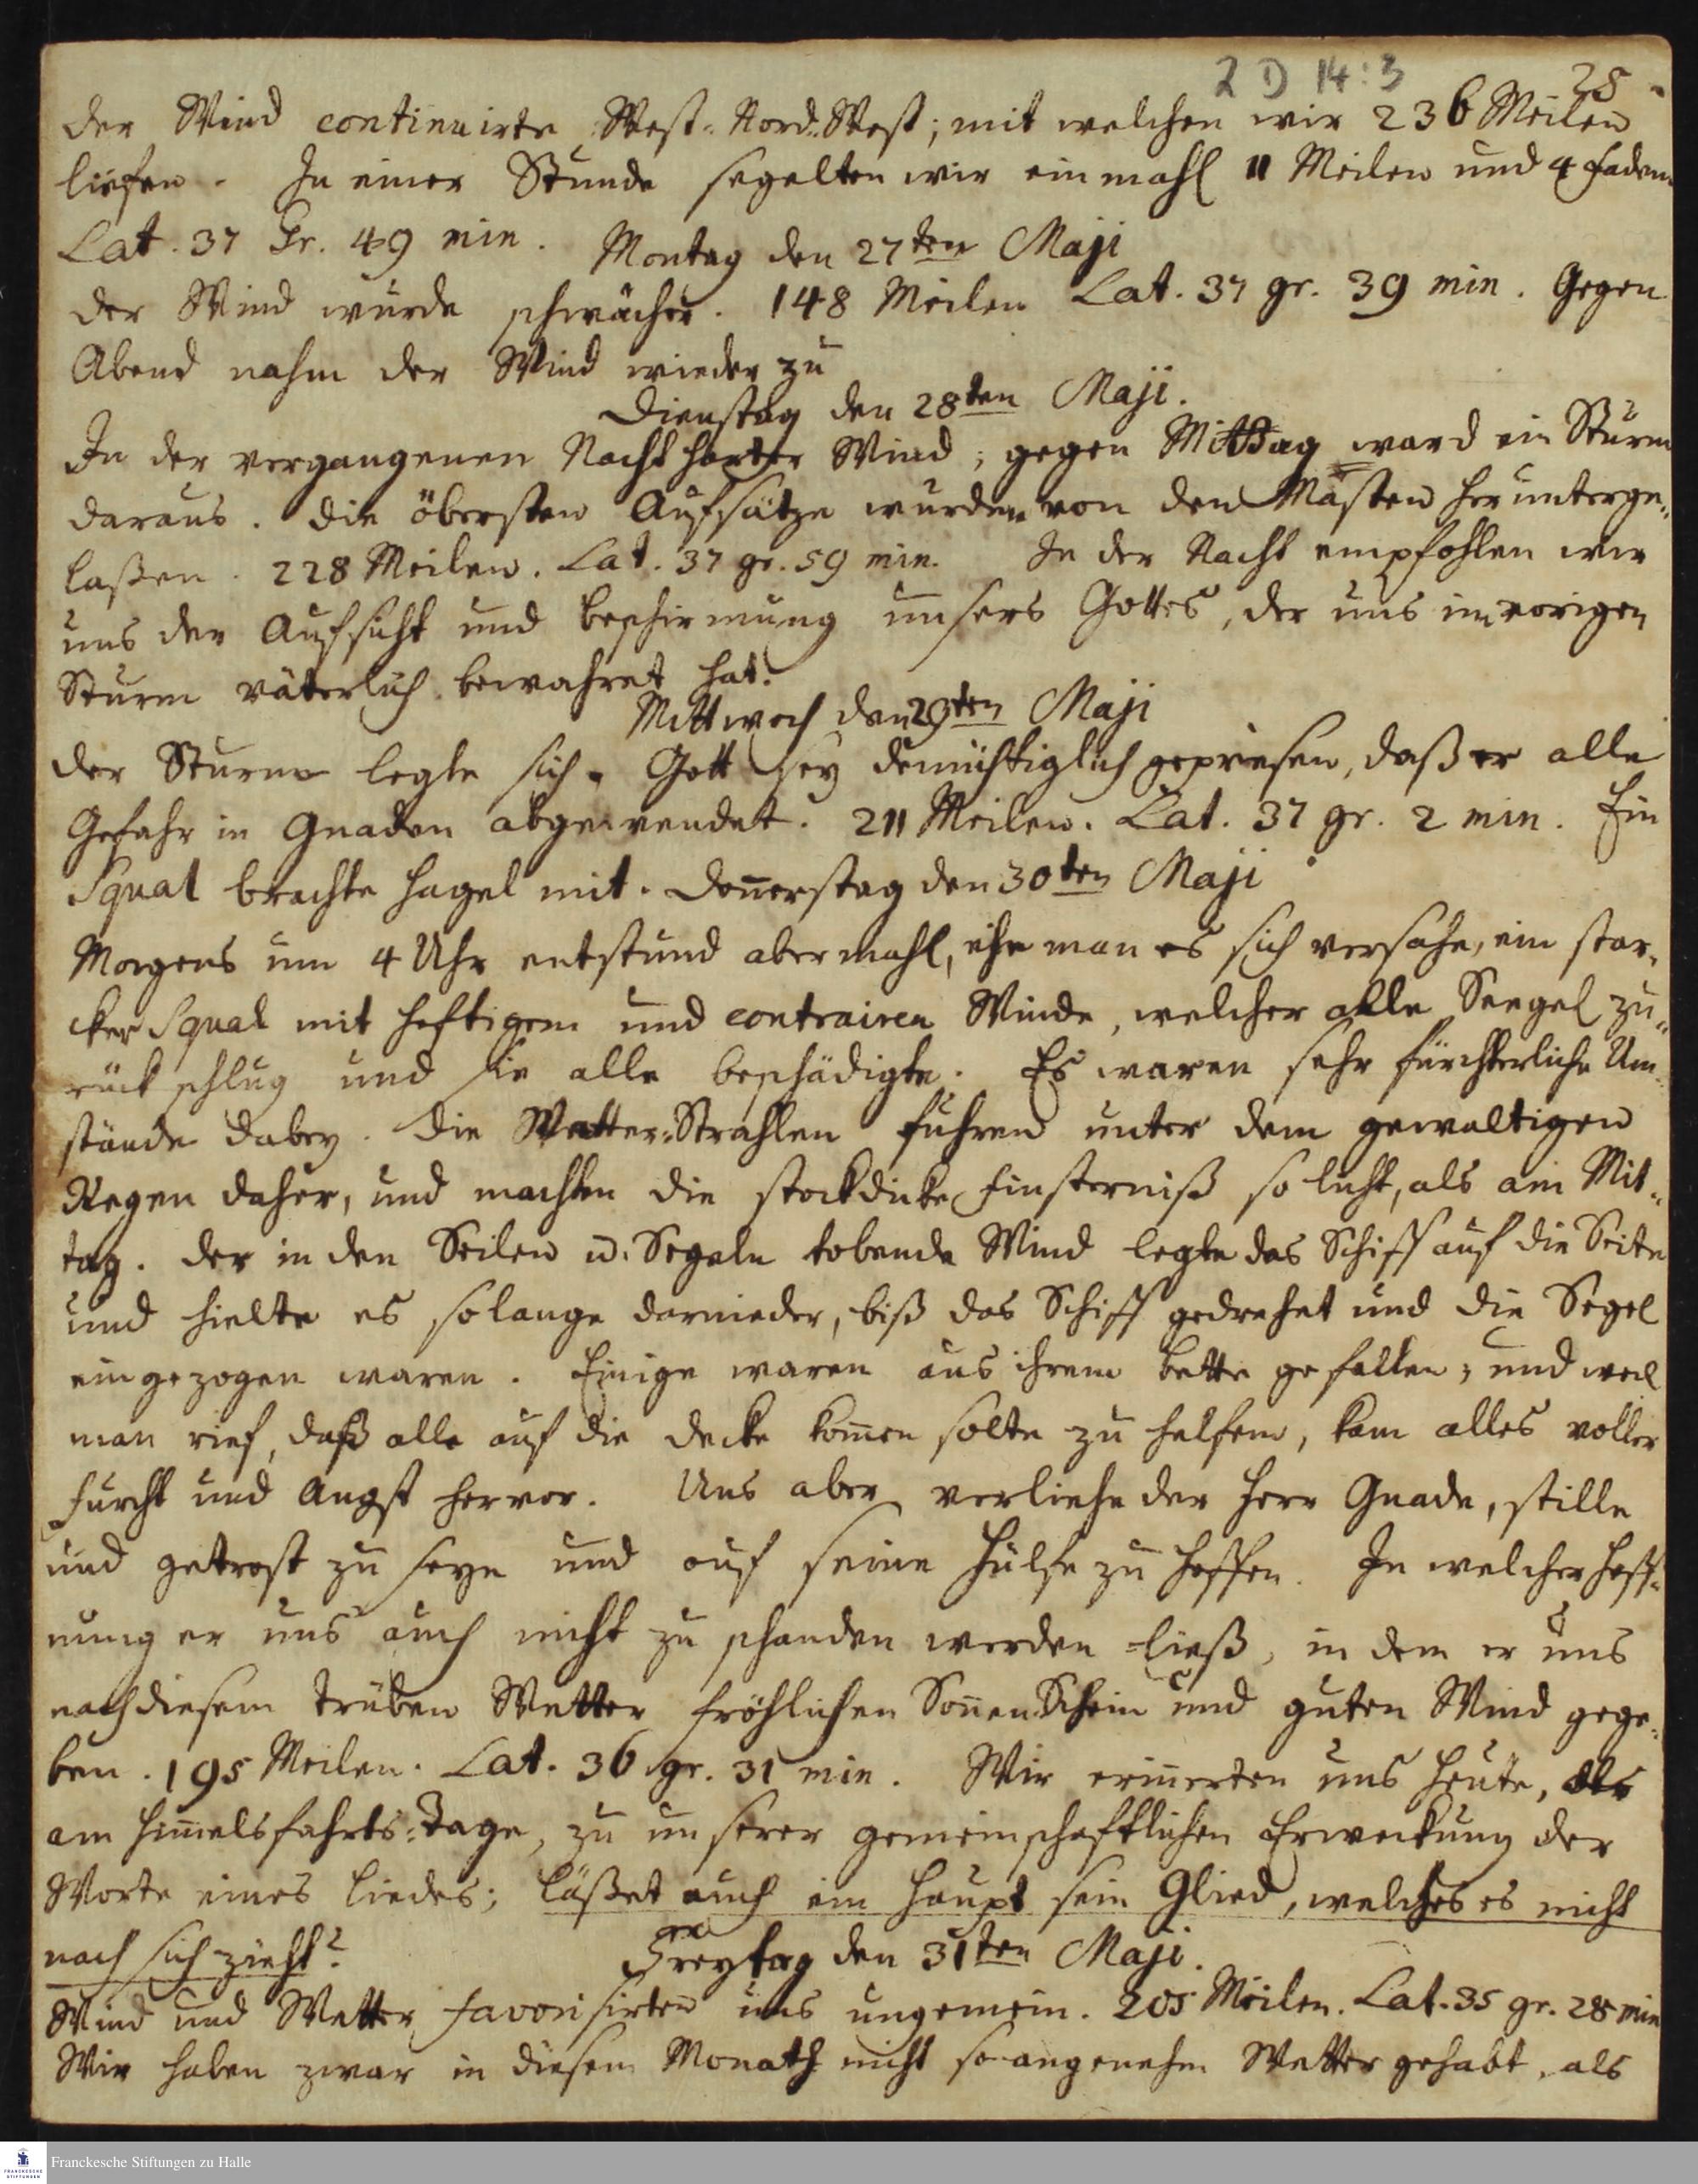 2 D 14:3
28
der Wind continuirte West-Nord-West; mit welchen wir 236 Meilen
liefen. In einer Stunde segelten wir einmahl 11 Meilen und 4 Faden
Lat. 37 Gr. 49 min. Montag den 27ten Maji
der Wind wurde schwächer. 148 Meilen Lat. 37 gr. 39 min. Gegen
Abend nahm der Wind wieder zu
Dienstag den 28ten Maji.
In der vergangenen Nacht harter Wind; gegen Mittag ward ein Sturm
daraus. Die öbersten Aufsätze wurden von den Masten herunterge-
laßen. 228 Meilen. Lat. 37 gr. 59 min. In der Nacht empfohlen wir
uns der Aufsicht und beschirmung unsers Gottes, der uns im vorigen
Sturm väterlich bewahret hat.
Mittwoch den 29ten Maji
der Sturm legte sich. Gott sey demüthiglich gepriesen, daß er alle
Gefahr in Gnaden abgewendet. 211 Meilen. Lat. 37 gr. 2 min. Ein
Squal brachte Hagel mit. Don̄erstag den 30ten Maji
Morgens um 4 Uhr entstund abermahl, ehe man es sich versahe, ein star-
cker Squal mit heftigem und contrairen Winde, welcher alle Seegel zu-
rück schlug und sie alle beschädigte. Es waren sehr fürchterliche Um-
stände dabey. Die Wetter-Strahlen fuhren unter dem gewaltigen
Regen daher, und machten die stockdicke Finsterniß so licht, als am Mit-
tag. der in den Seilen u. Segeln tobende Wind legte das Schiff auf die Seite
und hielte es solange darnieder, biß das Schiff gedrehet und die Segel
eingezogen waren. Einige waren aus ihrem bette gefallen; und weil
man rief, daß alle auf die decke kom̄en solte zu helfen, kam alles voller
Furcht und Angst hervor. Uns aber verliehe der Herr Gnade, stille
und getrost zu seyn und auf seine Hülfe zu hoffen. In welcher Hoff-
nung er uns auch nicht zu schanden werden ließ, in dem er uns
nach diesem trüben Wetter fröhlichen Son̄enschein und guten Wind gege-
ben. 195 Meilen. Lat. 36 gr. 31 min. Wir erin̄erten uns heute, als
am Him̄elsfahrts-Tage, zu unserer gemeinschaftlichen Erweckung der
Worte eines Liedes; läßet auch ein Haupt sein Glied, welches es nicht
nach sich zieht?
Freytag den 31ten Maji.
Wind und Wetter favorisirten uns ungemein. 205 Meilen. Lat. 35 gr. 28 min
Wir haben zwar in diesem Monath nicht so angenehm Wetter gehabt, als
Franckesche Stiftungen zu Halle
FRANCKESCHE STIFTUNGEN